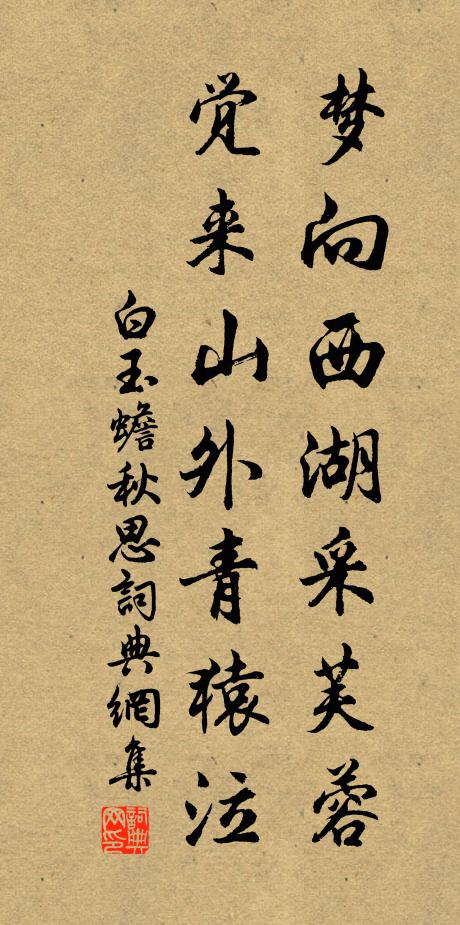 梦向西湖采芙蓉
觉来山外青猿泣
白玉蟾秋思詞典網集
詞典网印